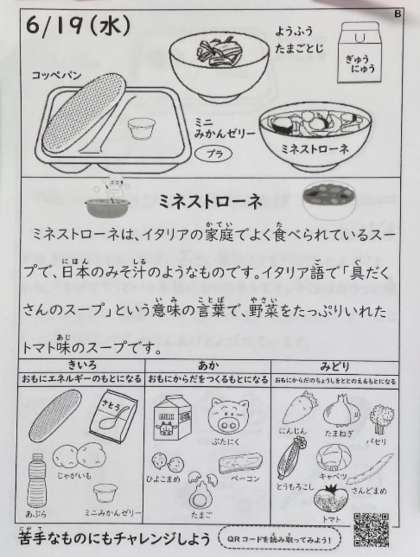 B
6/19(水)
ようふう
たまごとじ
ぎゅう
にゅう
コッペパン
ミニ
みかんゼリー
プラ
ミネストローネ
ミネストローネ
ミネストローネは、イタリアの家庭でよく食べられているスー
プで、日本のみそ汁のようなものです。イタリア語で「具だく
さんのスープ」という意味の言葉で、野菜をたっぷりいれた
トマト味のスープです。
きいろ
おもにエネルギーのもとになる
さとう
じゃがいも
あぶら
ミニみかんゼリー
あか
おもにからだをつくるもとになる
ぶたにく
ひよこまめ
ベーコン
たまご
みどり
おもにからだのちょうしをととのえるもとになる
にんじん
たまねぎ
パセリ
とうもろこし
キャベツ
さんどまめ
トマト
苦手なものにもチャレンジしよう
QRコードを読み取ってみよう!